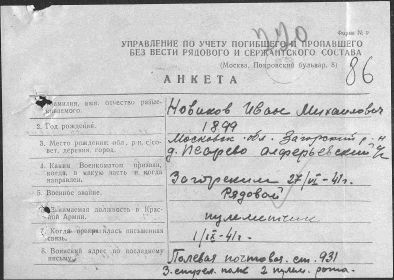 Форма № 9
УПРАВЛЕНИЕ ПО УЧЕТУ ПОГИБШЕГО И ПРОПАВШЕГО
БЕЗ ВЕСТИ РЯДОВОГО И СЕРЖАНТСКОГО СОСТАВА
(Москва, Покровский бульвар, 8)
86
АНКЕТА
Фамилия, имя, отчество разыскиваемого. Новиков Иван Михайлович
2. Год рождения. 1899
3. Место рождения: обл., р-н, с/совет, деревня, город. Московск. обл. Загорский р-н
д. Псарево
4. Каким Военкоматом призван, когда, в какую часть и когда направлен. Загорским 27/VI-41г.
5. Военное звание. Рядовой
Занимаемая должность в Красной Армии. пулеметчик
7. Когда прекратилась письменная связь. 1/IX-41г.
8. Воинский адрес по последнему письму. Полевая почтовая ст. 931
3. стрел. полк 2 пулем. рота.